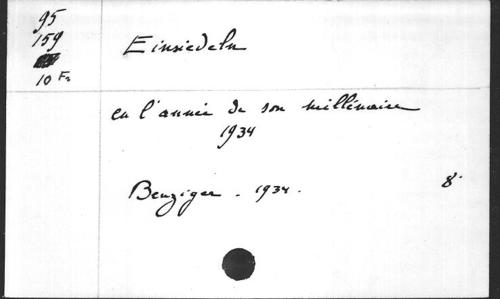 95
159
10 Fr
Einsiedeln
en l'année de son millénaire
1934
Benziger. 1934.
8°